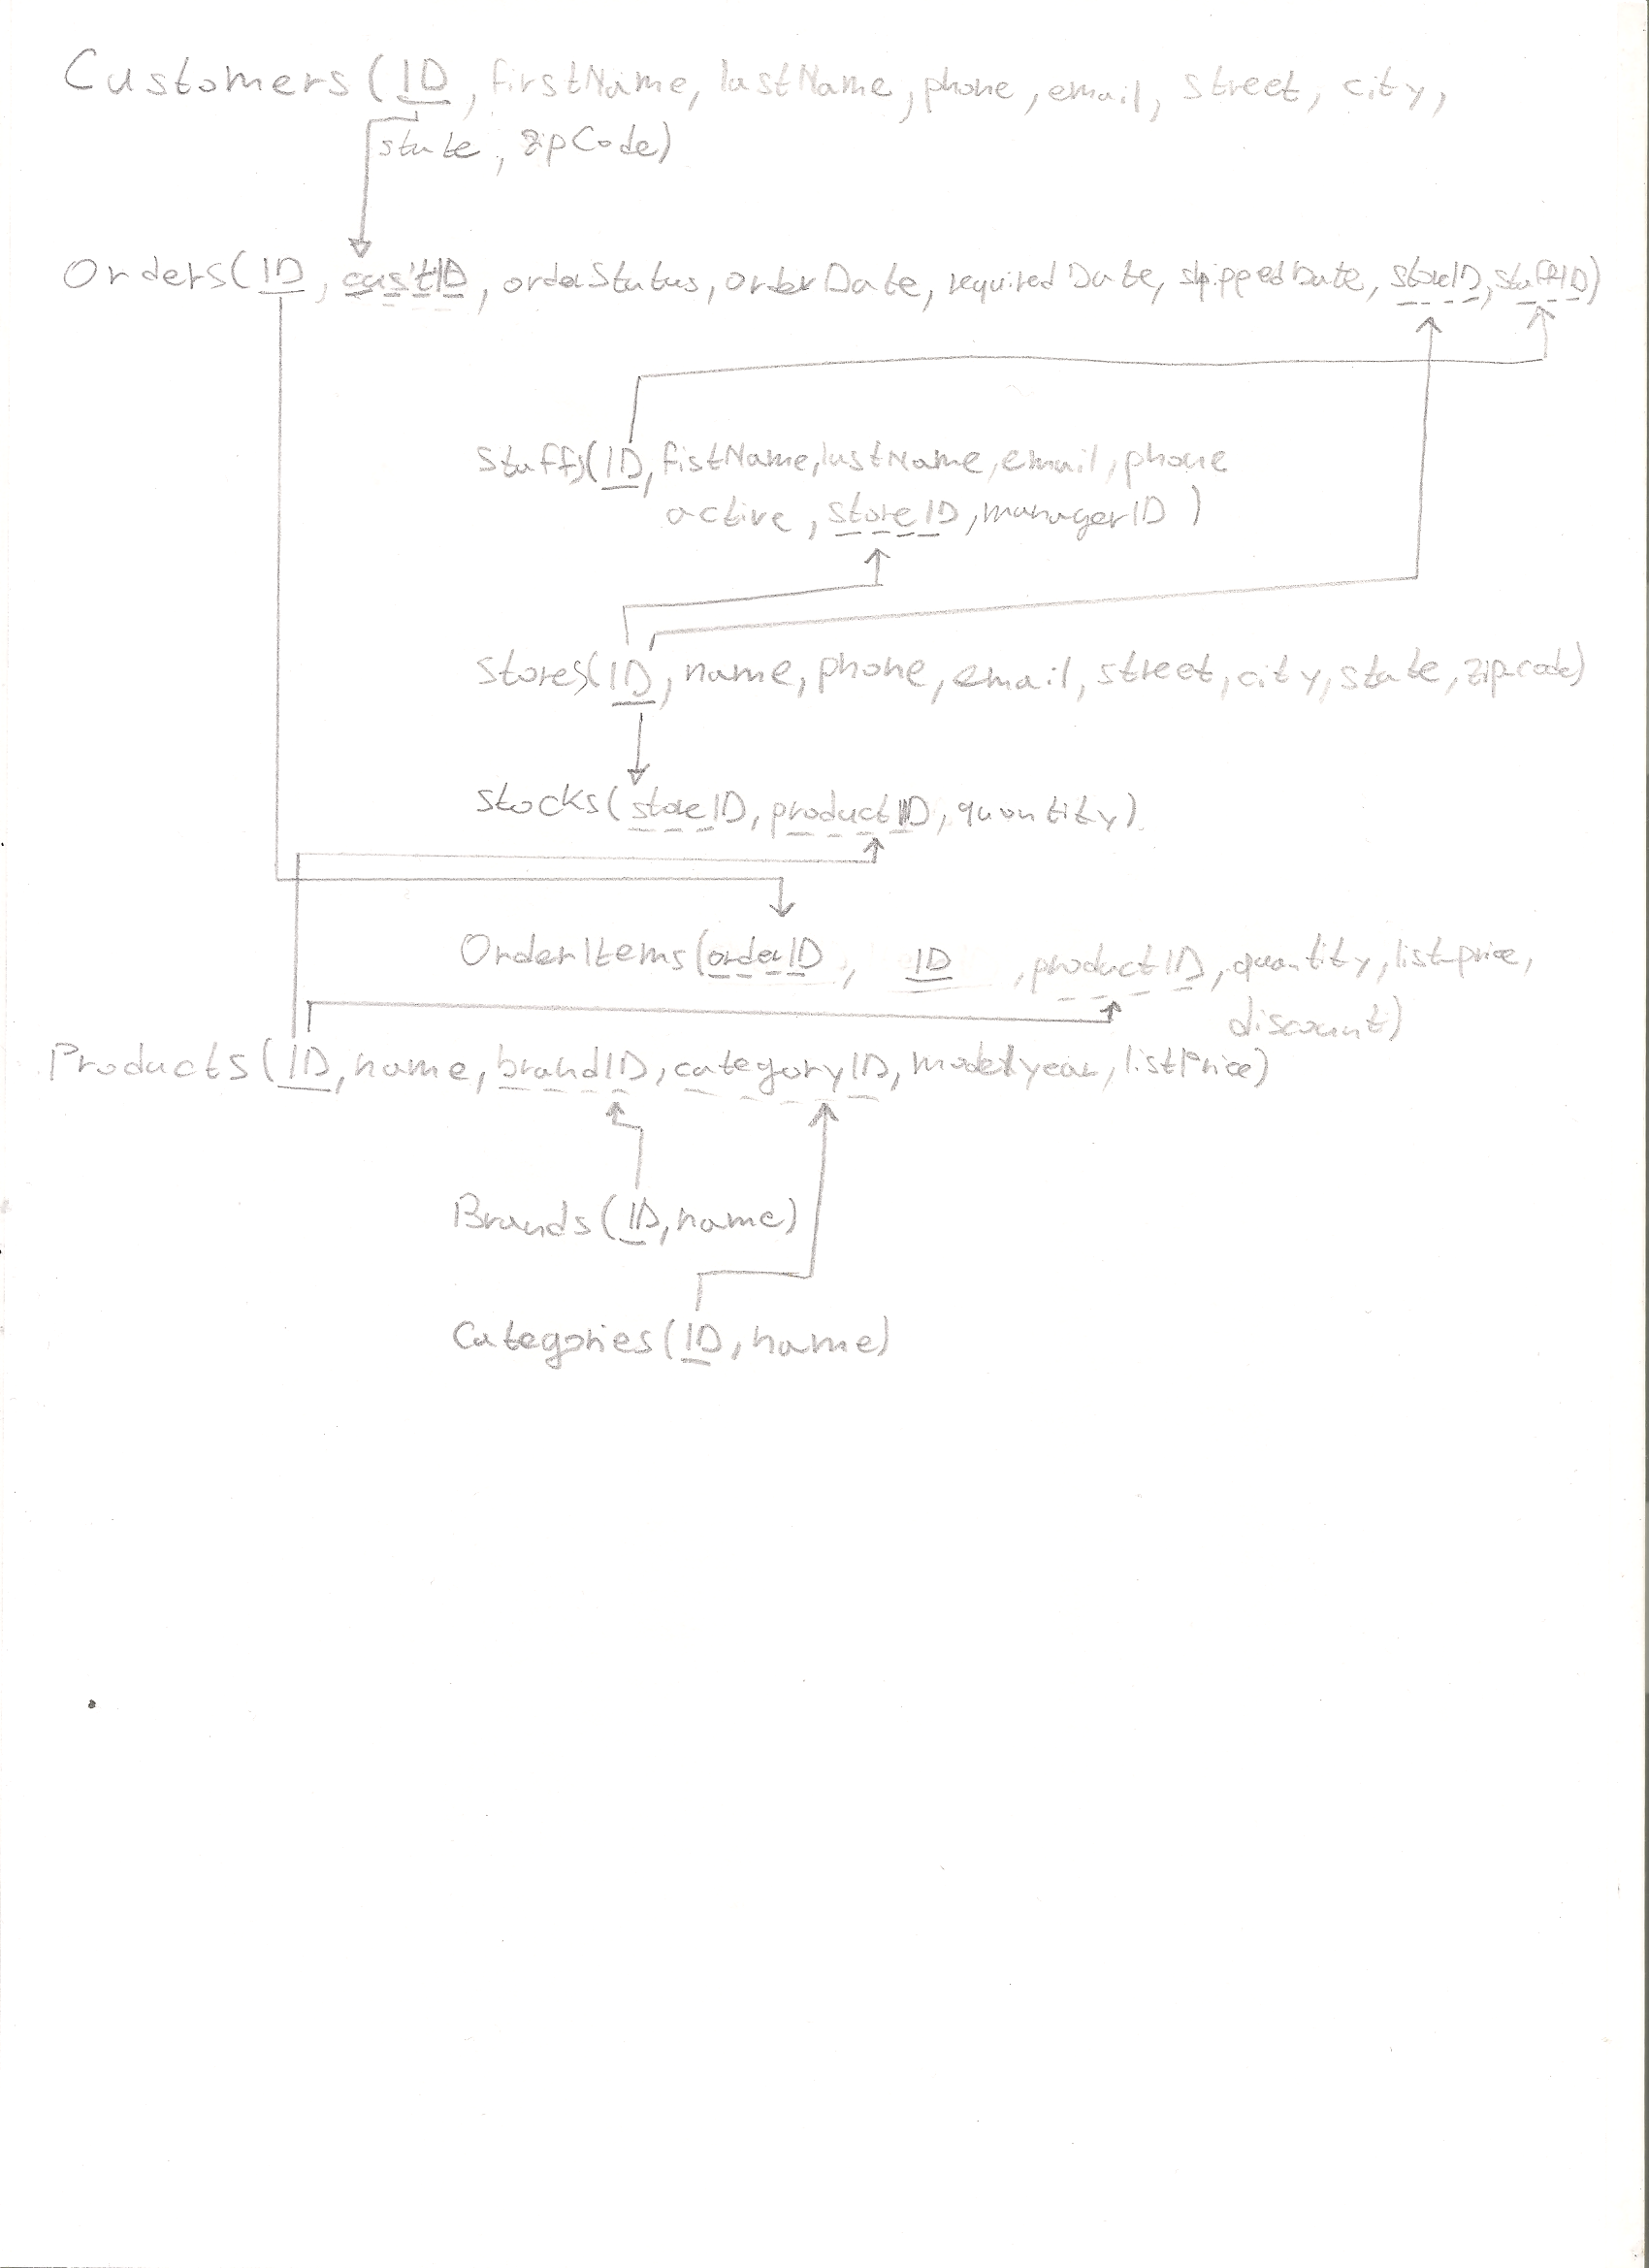 Customers (ID, firstName, lastName, phone, email, street, city,
state, zipCode)
Orders(ID, custID, orderStatus, orderDate, requiredDate, shippedDate, storeID, staffID)
Staffs(ID, fistName, lastName, email, phone
active, storeID, managerID)
Stores(ID, name, phone, email, street, city, state, zipcode)
Stocks(storeID, productID, quantity)
OrderItems(orderID, ID, productID, quantity, listprice,
discount)
Products(ID, name, brandID, categoryID, modelyear, listPrice)
Brands(ID, name)
Categories(ID, name)